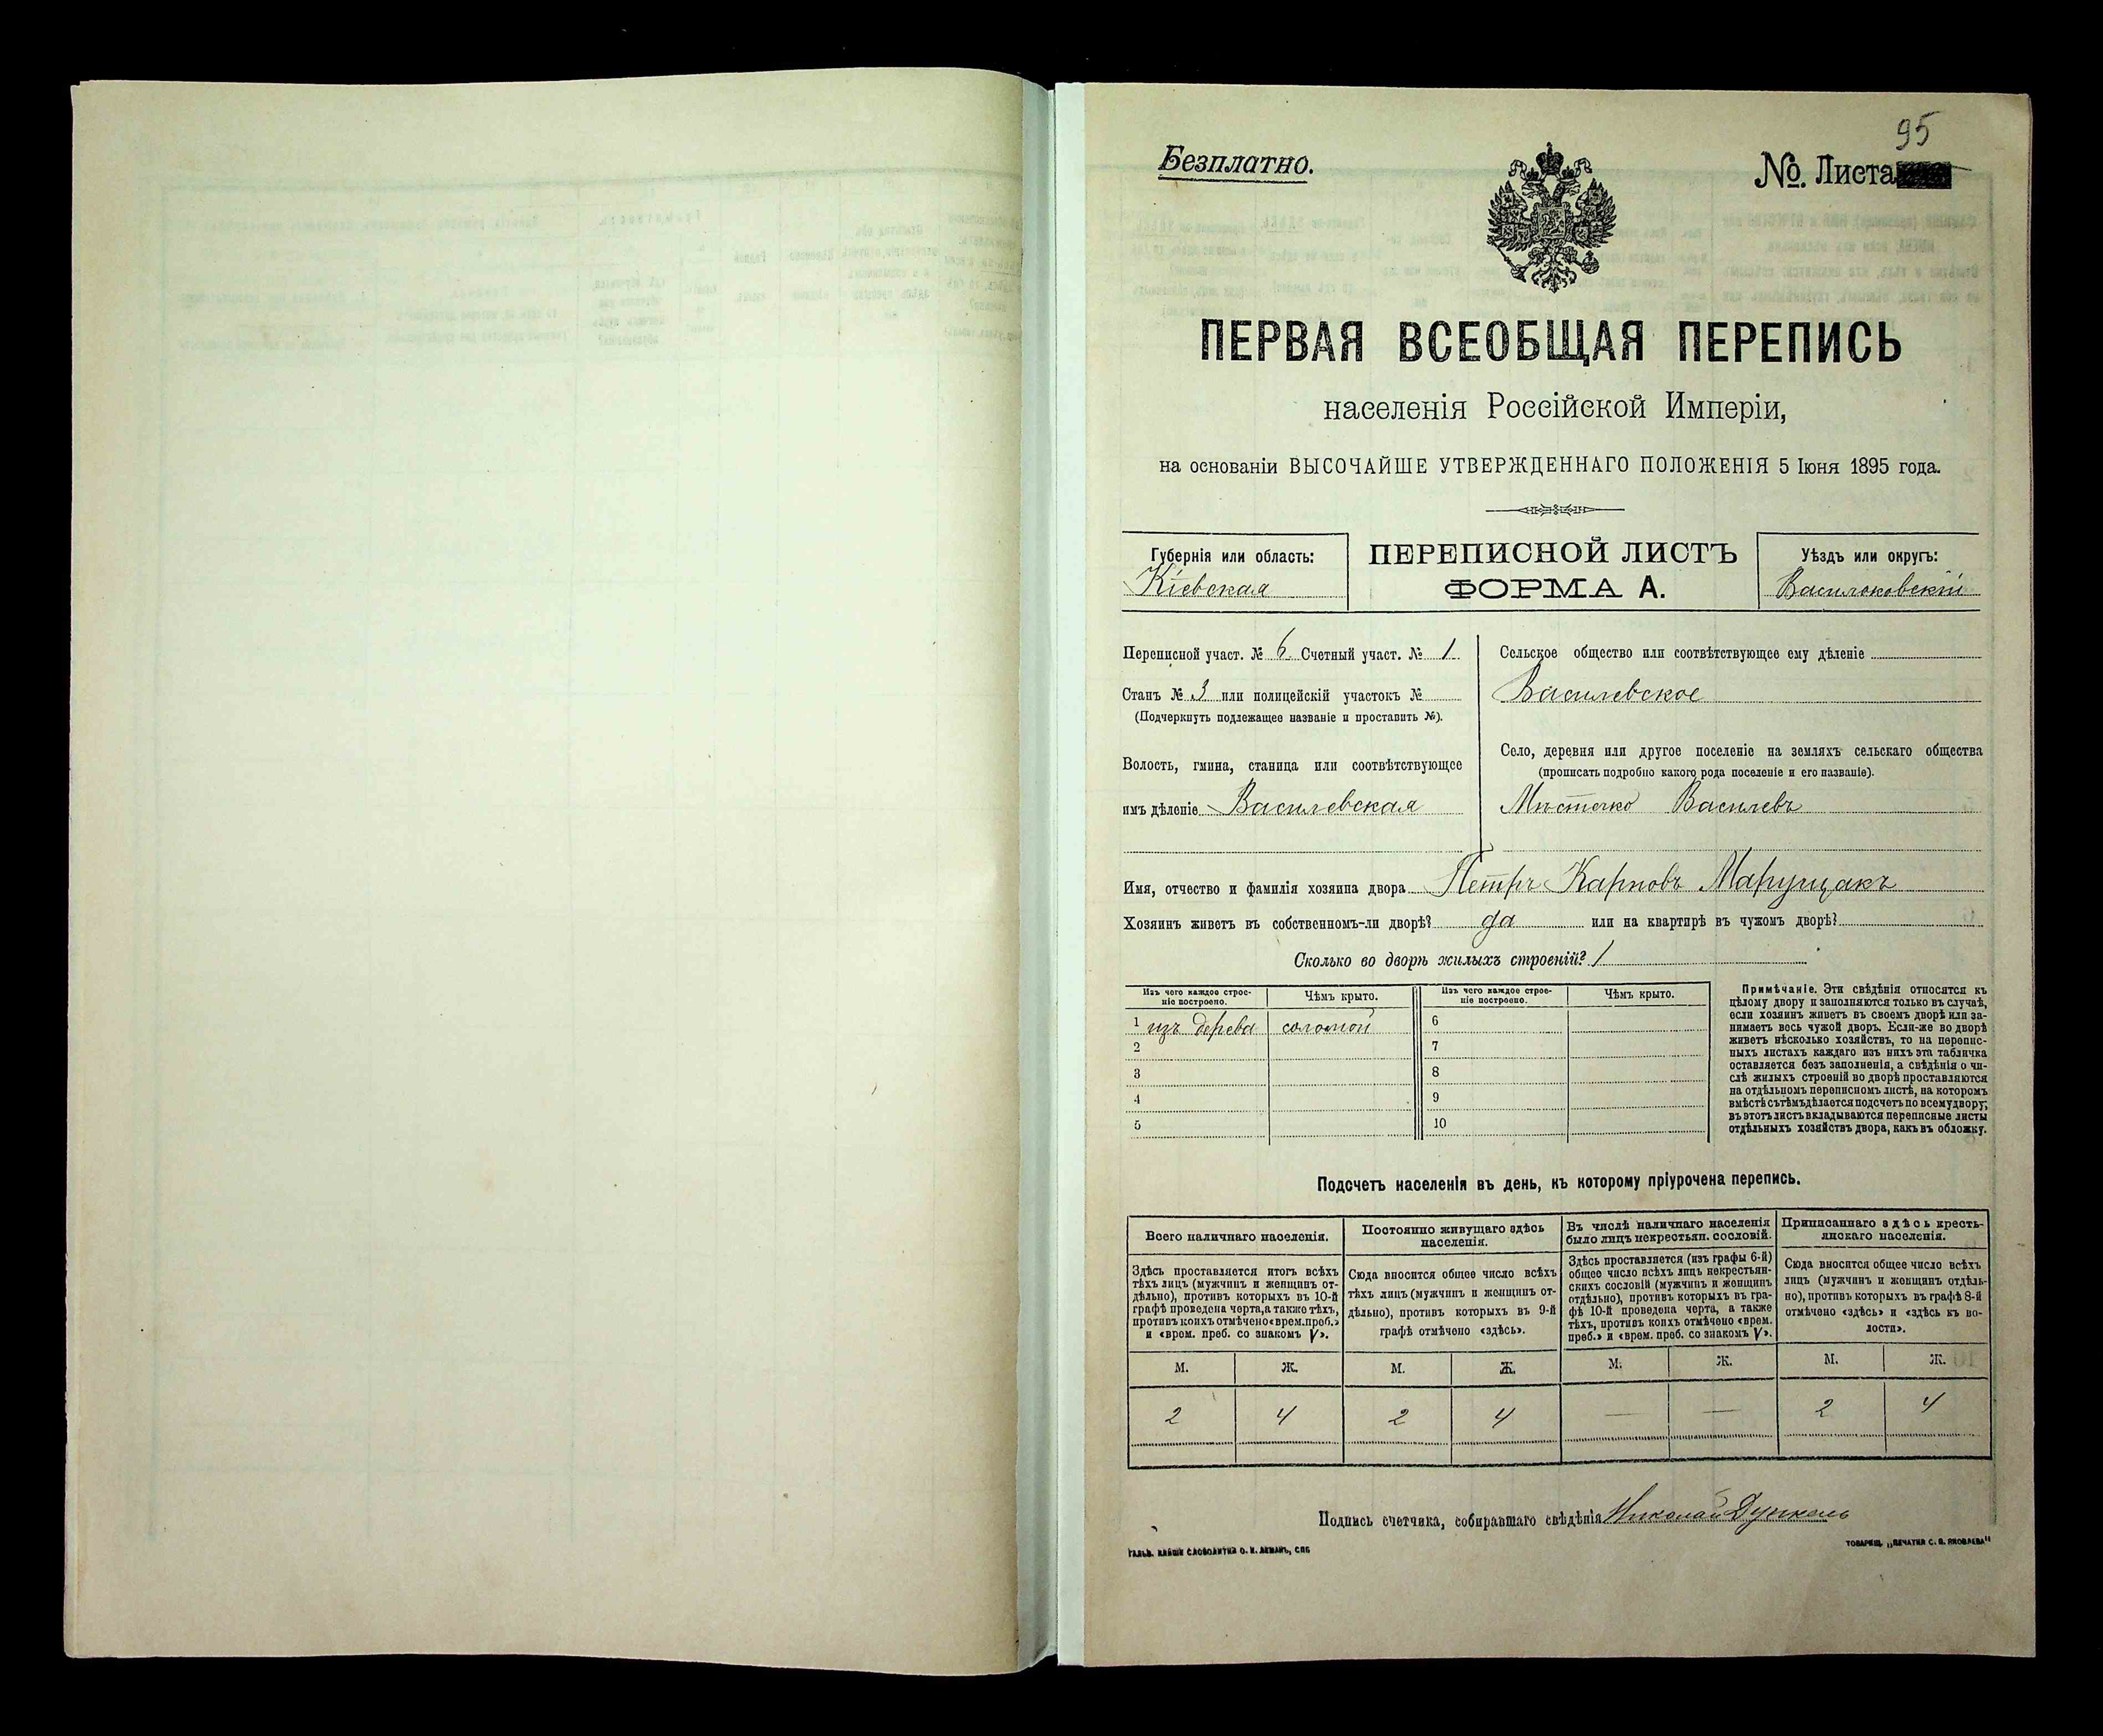 95
Безплатно.
№. Листа
ПЕРВАЯ ВСЕОБЩАЯ ПЕРЕПИСЬ
населенія Россійской Имперіи,
на основаніи ВЫСОЧАЙШЕ УТВЕРЖДЕННАГО ПОЛОЖЕНІЯ 5 Іюня 1895 года.
Губернія или область:
Кіевская
ПЕРЕПИСНОЙ ЛИСТЪ
ФОРМА А.
Уѣздъ или округъ:
Васильковскій
Переписной участ. № 6 Счетный участ. № 1
Станъ № 3 или полицейскій участокъ №
(Подчеркнуть подлежащее названіе и проставить №).
Волость, гмина, станица или соотвѣтствующее
имъ дѣленіе Василевская
Сельское общество или соотвѣтствующее ему дѣленіе
Василевское
Село, деревня или другое поселеніе на земляхъ сельскаго общества
(прописать подробно какого рода поселеніе и его названіе).
Мѣстечко Василевъ
Имя, отчество и фамилія хозяина двора Петръ Карповъ Марущакъ
Хозяинъ живетъ въ собственномъ-ли дворѣ? да или на квартирѣ въ чужомъ дворѣ?
Сколько во дворѣ жилыхъ строеній? 1
Изъ чего каждое строе-
ніе построено.
Чѣмъ крыто.
Изъ чего каждое строе-
ніе построено.
Чѣмъ крыто.
1 изъ дерева соломой 6
2 7
3 8
4 9
5 10
Примѣчаніе. Эти свѣдѣнія относятся къ
цѣлому двору и заполняются только въ случаѣ,
если хозяинъ живетъ въ своемъ дворѣ или за-
нимаетъ весь чужой дворъ. Если-же во дворѣ
живетъ нѣсколько хозяйствъ, то на перепис-
ныхъ листахъ каждаго изъ нихъ эта табличка
оставляется безъ заполненія, а свѣдѣнія о чи-
слѣ жилыхъ строеній во дворѣ проставляются
на отдѣльномъ переписномъ листѣ, на которомъ
вмѣстѣ съ тѣмъ дѣлается подсчетъ по всему двору;
въ этотъ листъ вкладываются переписные листы
отдѣльныхъ хозяйствъ двора, какъ въ обложку.
Подсчетъ населенія въ день, къ которому пріурочена перепись.
Всего наличнаго населенія.
Здѣсь проставляется итогъ всѣхъ
тѣхъ лицъ (мужчинъ и женщинъ от-
дѣльно), противъ которыхъ въ 10-й
графѣ проведена черта, а также тѣхъ,
противъ коихъ отмѣчено «врем. преб.»
и «врем. преб. со знакомъ V».
Постоянно живущаго здѣсь
населенія.
Сюда вносится общее число всѣхъ
тѣхъ лицъ (мужчинъ и женщинъ от-
дѣльно), противъ которыхъ въ 9-й
графѣ отмѣчено «здѣсь».
Въ числѣ наличнаго населенія
было лицъ некрестьян. сословій.
Здѣсь проставляется (изъ графы 6-й)
общее число всѣхъ лицъ некрестьян-
скихъ сословій (мужчинъ и женщинъ
отдѣльно), противъ которыхъ въ гра-
фѣ 10-й проведена черта, а также
тѣхъ, противъ коихъ отмѣчено «врем.
преб.» и «врем. преб. со знакомъ V».
Приписаннаго здѣсь кресть-
янскаго населенія.
Сюда вносится общее число всѣхъ
лицъ (мужчинъ и женщинъ отдѣль-
но), противъ которыхъ въ графѣ 8-й
отмѣчено «здѣсь» и «здѣсь къ во-
лости».
М. Ж. М. Ж. М. Ж. М. Ж.
2 4 2 4 — — 2 4
Подпись счетчика, собиравшаго свѣдѣнія Николай Дункель
ТОВАРИЩ. „ПЕЧАТНЯ С. П. ЯКОВЛЕВА“